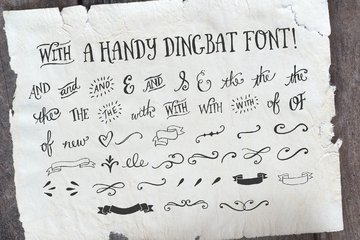 WITH A HANDY DINGBAT FONT!
AND and AND & AND & & the the the
the THE THE with WITH WITH WITH of OF
of new
elle